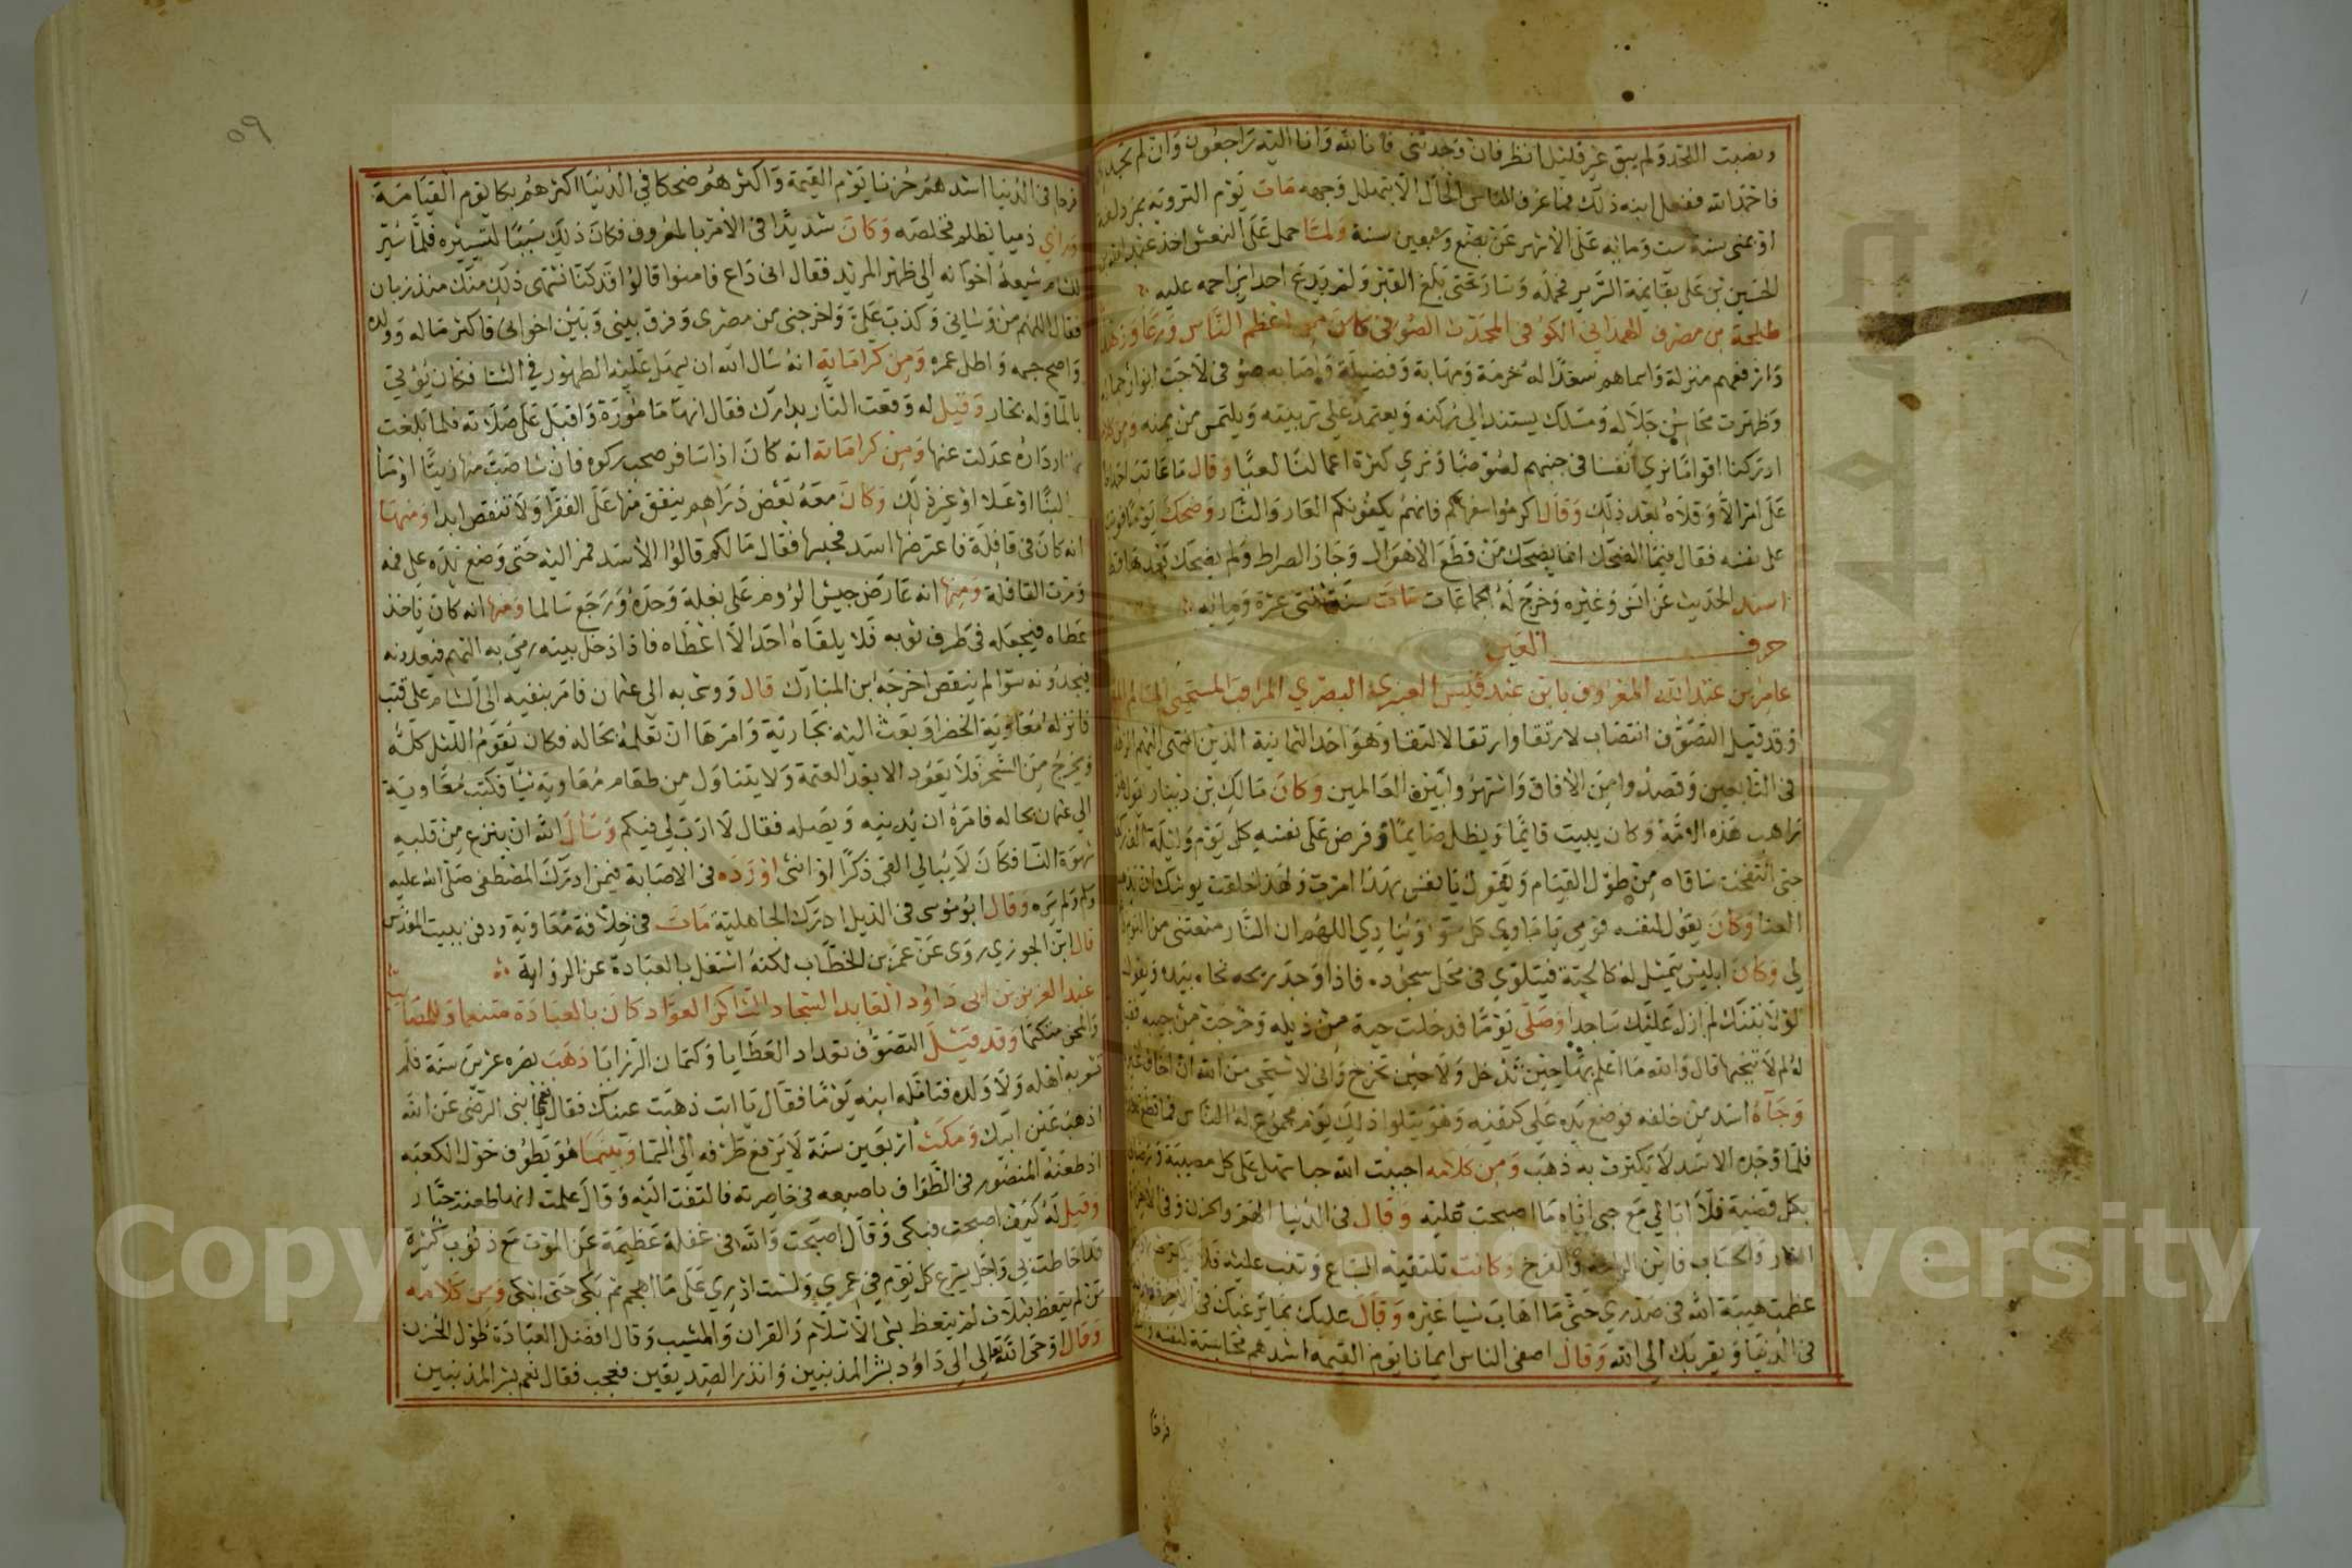 ونصبت اللحد ولم يبق غير قليل انظر فان وجدتني فانا لله وانا اليه راجعون وان لم تجدني
فاحمد الله ففعل ابنه ذلك فما عرف الناس الحال الا بتهلل وجهه مات يوم التروية بمزدلفة
او بمنى سنة ست ومائه على الاشهر عن بضع وسبعين سنة ولما حمل على النعش اخذ عبد الله بن
الحسين بن علي بقايمة السرير فحمله وسار حتى بلغ القبر ولم يدع احدا يزاحمه عليه
طلحة بن مصرف الهمداني الكوفي المحدث الصوفي كان من اعظم الناس ورعا وزهدا
وارفعهم منزلة واسماهم سعدا له حرمة ومهابة وفضيلة واصابه صوفي لاحت انوار جماله
وظهرت محاسن جلاله ومسلك يستند الى ركنه ويعتمد على تربيته ويلتمس من يمنه ومن كلامه
ادركنا اقواما نرى انفسنا في جنبهم لصوصا ونرى كثرة اعمالنا لعبا وقال ما عاتب احد
على امر الا وقلاه بعد ذلك وقال اكرموا سفهاكم فانهم يكفونكم العار والنار وضحك يوما
على نفسه فقال فيما الضحك انما يضحك من قطع الاهوال وجاز الصراط ولم يضحك بعدها قط
اسند الحديث عن انس وغيره وخرج له الجماعات مات سنة اثنتي عشرة ومائه
حرف العين
عامر بن عبد الله المعروف بابن عبد قيس العنبري البصري المراقب المستحيي
وقد قيل التصوف انتصاب لارتقا وارتقا لالتقا وهو احد الثمانية الذين انتهى اليهم الزهد
في التابعين وقصدوا من الافاق واشتهروا بين العالمين وكان مالك بن دينار يقول
راهب هذه الامة وكان يبيت قائما ويظل صايما وفرض على نفسه كل يوم وليلة الف ركعة
حتى انتفخت ساقاه من طول القيام ويقول يا نفس بهذا امرت ولهذا خلقت يوشك ان يذهب
العنا وكان يقول لنفسه قومي يا ماوى كل سوء وينادي اللهم ان النار منعتني من النوم
لي وكان ابليس يتمثل له كالحية فيتلوي في محل سجوده فاذا وجد ريحه نحاه بيده ويقول
لولا نتنك لم ازل عليك ساجدا وصلى يوما فدخلت حية من ذيله وخرجت من جيبه فقيل
له لم لا تنحها قال والله ما اعلم بها حين تدخل ولا حين تخرج واني لاستحي من الله ان اخاف غيره
وجاه اسد من خلفه فوضع يده على كتفيه وهو يتلوا ذلك يوم مجموع له الناس
فلما وجده الاسد لا يكترث به ذهب ومن كلامه احببت الله حبا سهل علي كل مصيبة ورضاني
بكل قضية فلا ابالي مع حبي اياه ما اصبحت عليه وقال في الدنيا الهم والحزن وفي الاخرة
النار والحساب فاين الراحة والفرج وكانت تلتقيه السباع
عظمت هيبة الله في صدري حتى ما اهاب شيا غيره وقال عليك بما يرغبك في الاخرة ويزهدك
في الدنيا ويقربك الى الله وقال اصفى الناس ايمانا يوم القيمه اشدهم محاسبة لنفسه
فرحا
٥٩
فرحا في الدنيا اشدهم حزنا يوم القيمة واكثرهم ضحكا في الدنيا اكثرهم بكا يوم القيامة
وراى ذميا يظلم فخلصه وكان شديدا في الامر بالمعروف فكان ذلك سببا لتسييره فلما سير
للشام شيعه اخوانه الى ظهر المربد فقال اني داع فامنوا قالوا قد كنا نشتهي ذلك منك منذ زمان
فقال اللهم من وشاني وكذب علي واخرجني من مصري وفرق بيني وبين اخواني فاكثر ماله وولده
واصح جسمه واطل عمره ومن كراماته انه سال الله ان يهون عليه الطهور في الشتا فكان يؤتى
بالما وله بخار وقيل له وقعت النار بدارك فقال انها مامورة واقبل على صلاته فلما بلغت
النار داره عدلت عنها ومن كراماته انه كان اذا سافر صحب ركوه فان شا صب منها زيتا او شا
لبنا او عسلا او غير ذلك وكان معه بعض دراهم ينفق منها على الفقرا ولا تنقص ابدا ومنها
انه كان في قافلة فاعترضها اسد فحبسها فقال مالكم قالوا الاسد فمر اليه حتى وضع يده على فمه
ومرت القافلة ومنها انه عارض جيش الروم على بغلة وحده ورجع سالما ومنها انه كان ياخذ
عطاه فيجعله في طرف ثوبه فلا يلقاه احد الا اعطاه فاذا دخل بيته رمى به اليهم فيعدونه
فيجدونه سوا لم ينقص اخرجه ابن المبارك قال ووشى به الى عثمان فامر بنفيه الى الشام على قتب
فانزله معاوية الخضرا وبعث اليه بجارية وامرها ان تعلمه بحاله فكان يقوم الليل كله
ويخرج من السحر فلا يعود الا بعد العتمة ولا يتناول من طعام معاوية شيا فكتب معاوية
الى عثمان بحاله فامره ان يدنيه ويصله فقال لا ارب لي فيكم وسال الله ان ينزع من قلبه
شهوة النسا فكان لا يبالي القى ذكرا او انثى اورده في الاصابة فيمن ادرك المصطفى صلى الله عليه
وسلم ولم يره وقال ابو موسى في الذيل ادرك الجاهلية مات في خلافة معاوية ودفن ببيت المقدس
قال ابن الجوزي روى عن عمر بن الخطاب لكنه اشتغل بالعبادة عن الرواية
عبد العزيز بن ابي داؤد العابد السجاد الشاكر العواد كان بالعبادة متنعما وللمصايب
والمحن متكتما وقد قيل التصوف تعداد العطايا وكتمان الرزايا ذهب بصره عشرين سنة فلم
تشعر به اهله ولا ولده فتامله ابنه يوما فقال يا ابت ذهبت عينك فقال نعم يا بني الرضى عن الله
اذهب عين ابيك ومكث اربعين سنة لا يرفع طرفه الى السما وبينما هو يطوف حول الكعبه
اذ طعنه المنصور في الطواف باصبعه في خاصرته فالتفت اليه وقال علمت انها طعنة جبار
وقيل له كيف اصبحت فبكى وقال اصبحت والله في غفلة عظيمة عن الموت مع ذنوب كثيرة
قد احاطت بي واجل يسرع كل يوم في عمري ولست ادري على ما اهجم ثم بكى حتى ابكى ومن كلامه
من لم يتعظ بثلاث لم يتعظ بشي الاسلام والقران والمشيب وقال افضل العبادة طول الحزن
وقال اوحى الله تعالى الى داؤد بشر المذنبين وانذر الصديقين فعجب فقال نعم بشر المذنبين
Copyright © King Saud University